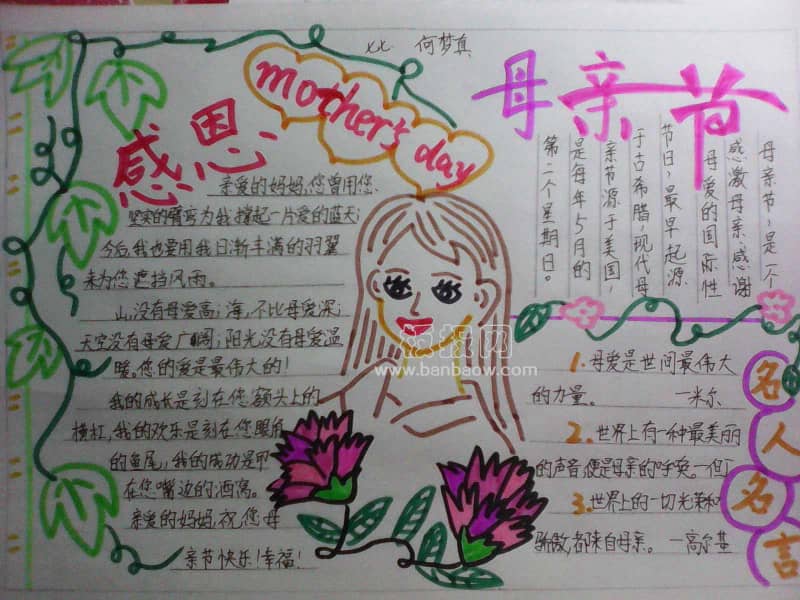 七七 何梦真
mother's day
感恩
亲爱的妈妈,您曾用您
坚实的臂弯为我撑起一片爱的蓝天;
今后,我也要用我日渐丰满的羽翼
来为您遮挡风雨。
山,没有母爱高;海,不比母爱深;
天空没有母爱广阔;阳光没有母爱温
暖。您的爱是最伟大的!
我的成长是刻在您额头上的
横杠,我的欢乐是刻在您眼角
的鱼尾,我的成功是
在您嘴边的酒窝。
亲爱的妈妈,祝您母
亲节快乐!幸福!
母亲节
母亲节,是一个
感激母亲,感谢
母爱的国际性
节日,最早起源
于古希腊,现代母
亲节源于美国,
是每年5月的
第二个星期日。
1.母爱是世间最伟大
的力量。 —米尔
2.世界上有一种最美丽
的声音,便是母亲的呼唤。—但
3.世界上的一切光荣和
骄傲,都来自母亲。—高尔基
名人名言
报网
www.banbaow.com